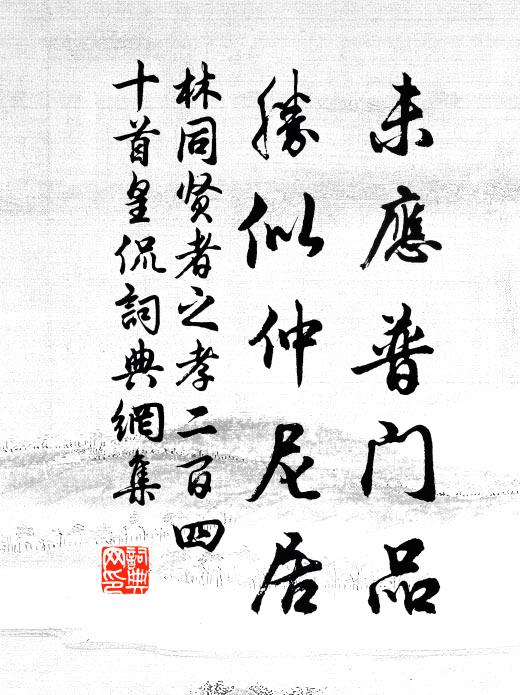 未應普門品
勝似仲尼居
林同賢者之孝二百四
十首皇侃詞典網集
詞典
网印